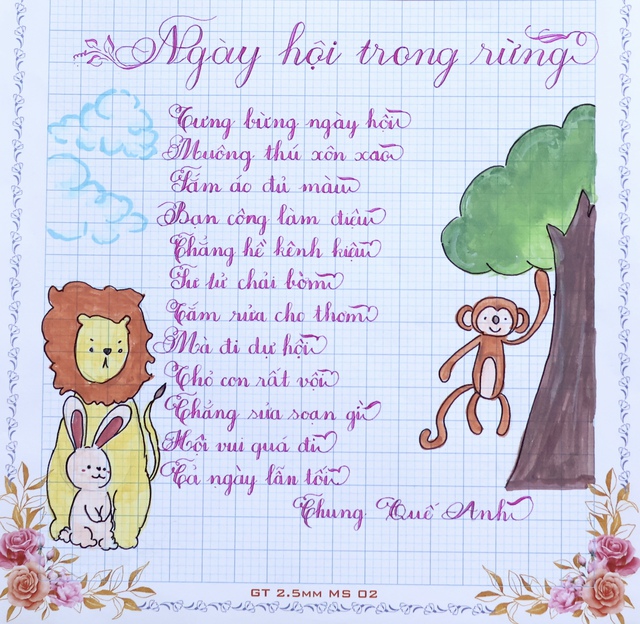 Ngày hội trong rừng
Tưng bừng ngày hội
Muông thú xôn xao
Sắm áo đủ màu
Bạn công làm điệu
Chẳng hề kênh kiệu
Sư tử chải bờm
Tắm rửa cho thơm
Mà đi dự hội
Thỏ con rất vội
Chẳng sửa soạn gì
Hội vui quá đi
Cả ngày lẫn tối
Chung Quế Anh
GT 2.5MM MS 02